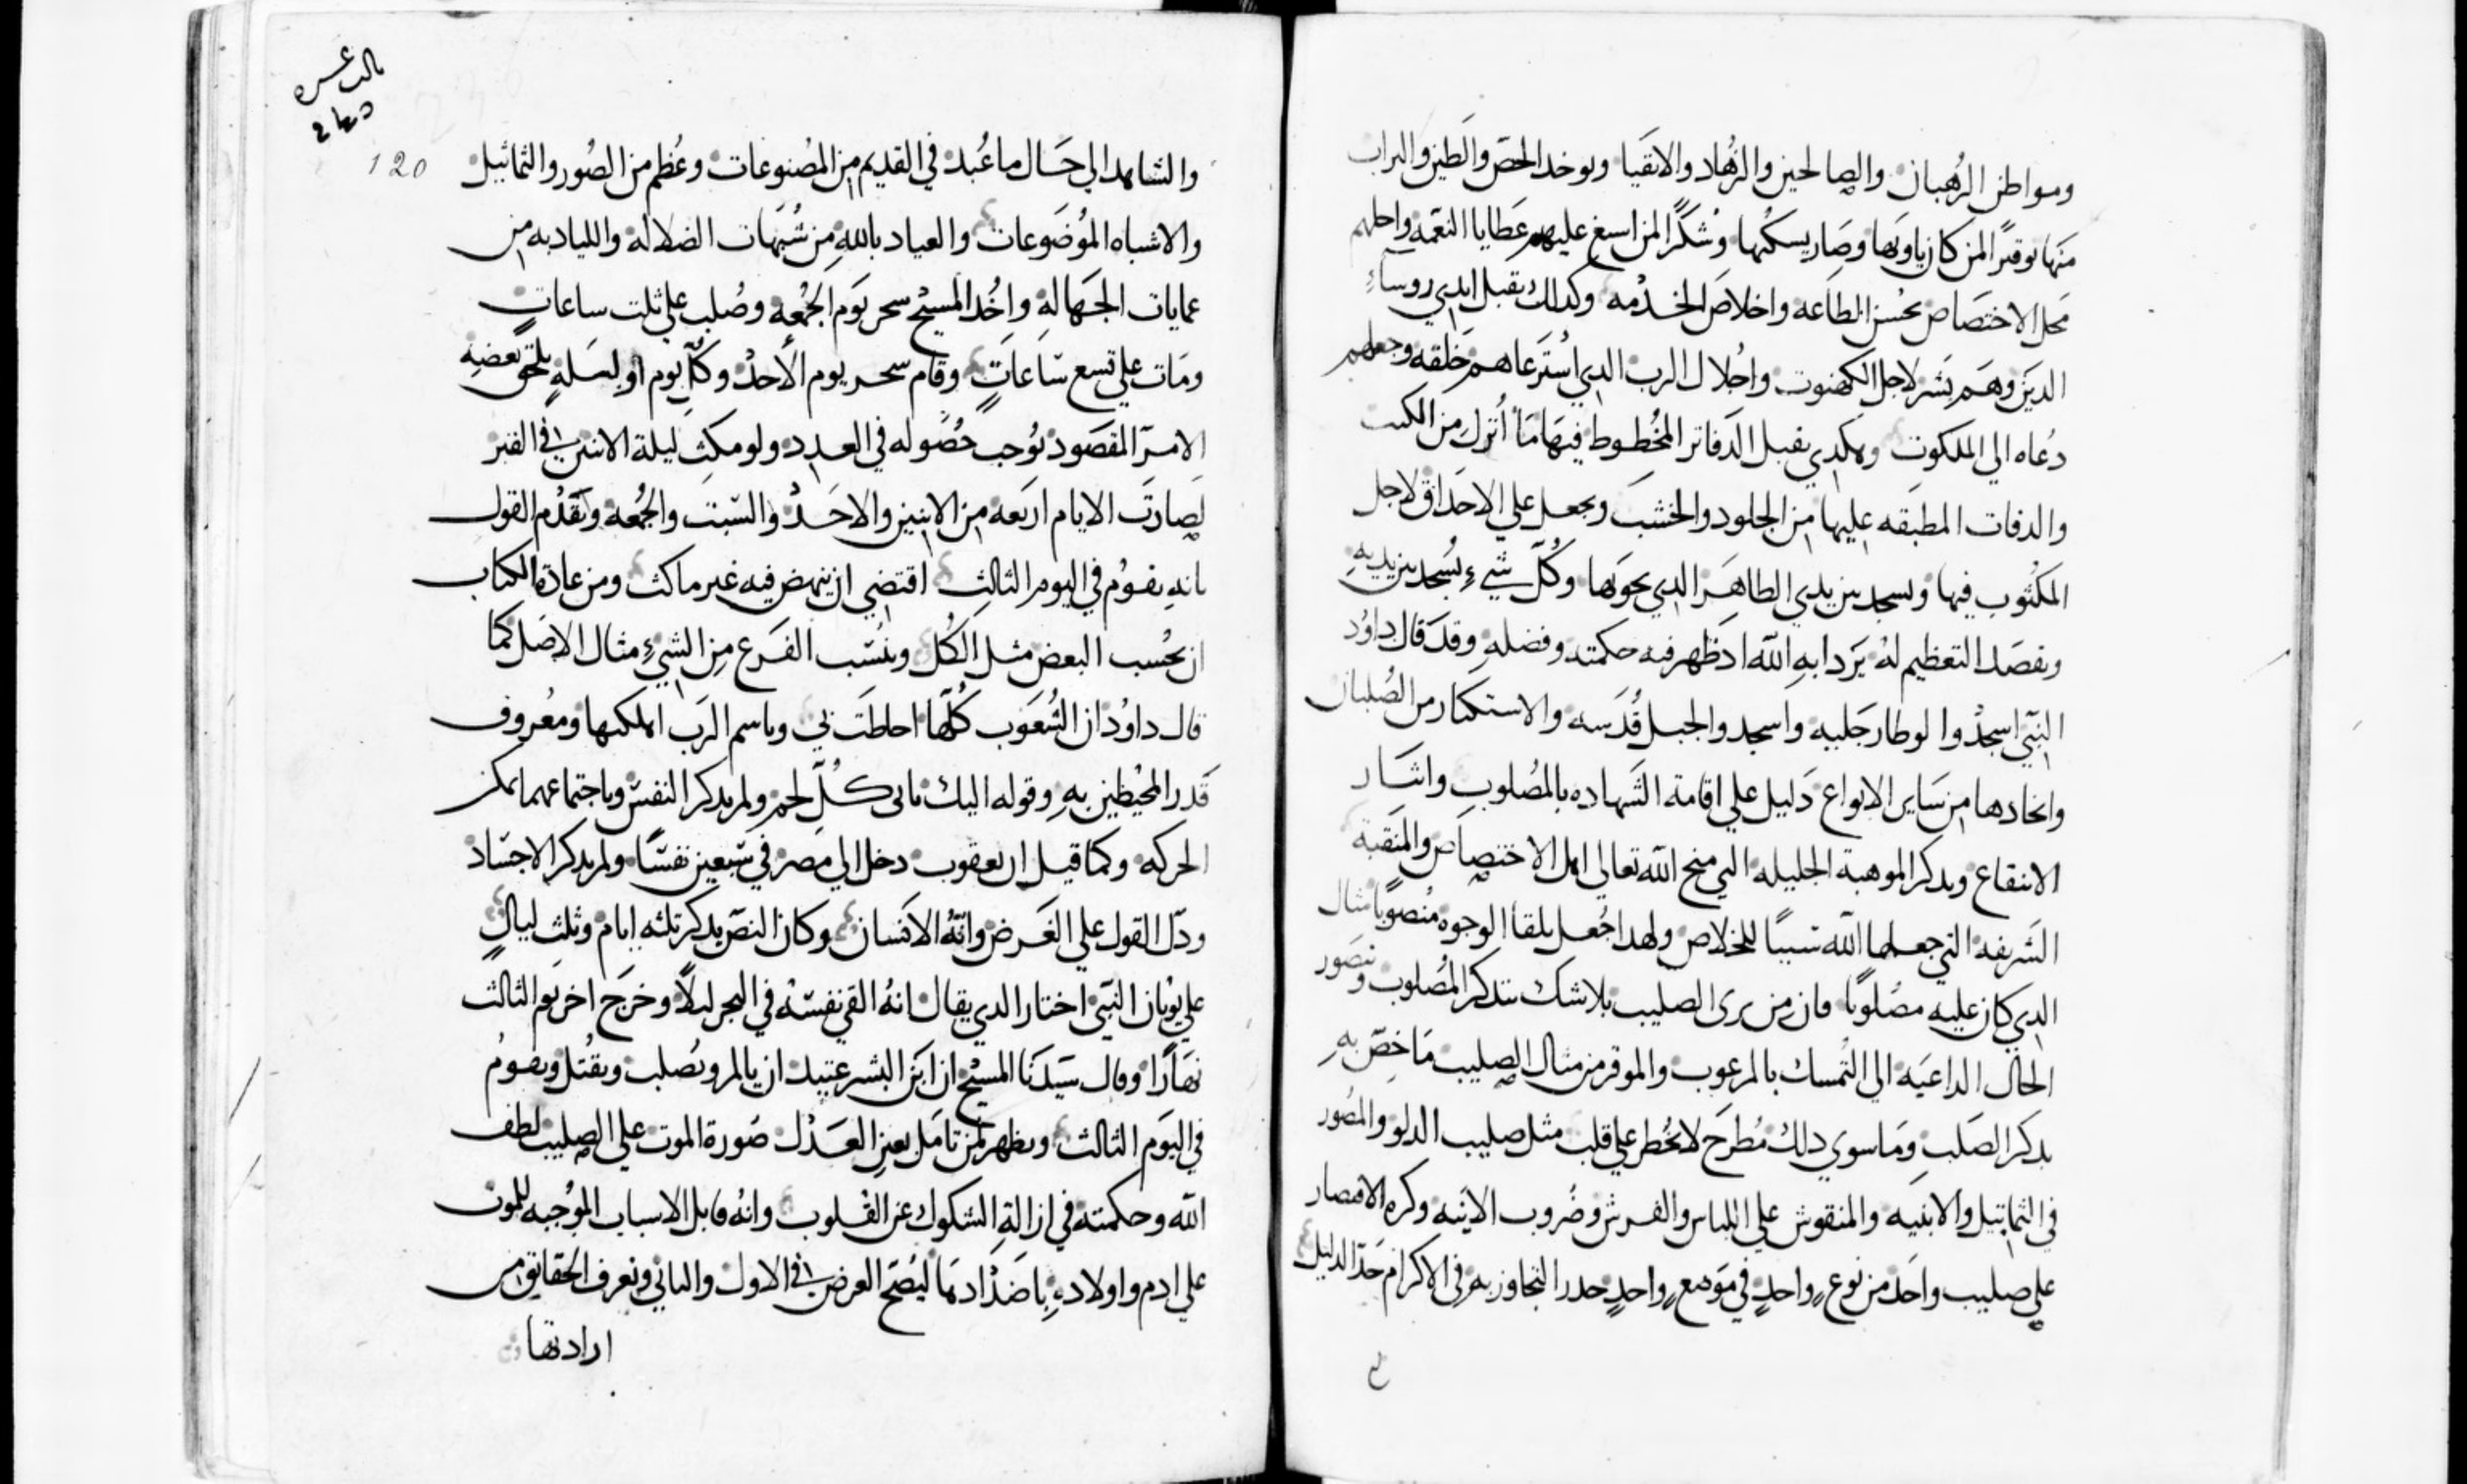 ومواطن الرُهبان والصالحين والزُهاد والاتقيا ويوخد الجص والطين والتراب
منها توقيرًا لمن كان ياويها وصار يسكنها وشكرًا لمن اسبغ عليهم عَطايا النعمه واحلهم
محل الاختصاص بحُسن الطاعه واخلاص الخدمه وكدالك يقبل ايدي روساءِ
الدين وهم بشر لاجل الكهنوت واجلال الرب الدي استرعاهم خلقه وجعلهم
دُعاه الي الملكوت وهكدي يقبل الدفاتر المخطوط فيها ما اُنزل من الكتب
والدفات المطبقه عليها من الجلود والخشب ويجعل علي الاحداق لاجل
المكتوب فيها ويسجد بين يدي الطاهر الدي يحويها وكُلّ شيءٍ يُسجد بين يديهِ
ويقصد التعظيم لهُ يراد بهِ الله اد ظهر فيه حكمته وفضلهِ وقد قال داوُد
النبي اسجدُوا لوطا رجليه واسجدوا لجبل قُدسه والاستكثار من الصُلبان
واتخادها من ساير الانواع دليل علي اقامة الشهاده بالمصُلوب وايثار
الانتفاع ويدكر الموهبة الجليله التي منح الله تعالي اهل الاختصاص والمنقبة
الشريفه التي جعلها الله سببًا للخلاص ولهدا جُعل بلقا الوجوه منصُوبًا مثال
الدي كان عليه مصُلوبًا فان من يري الصليب بلا شك يتدكر المصُلوب وتتصور
الحال الداعيه الي التمسك بالمرغوب والموقر من مثال الصليب ما خُصّ بهِ
بدكر الصلب وما سوي دلك مُطرح لا يخُطر علي قلب مثل صليب الدلو والمصُور
في التماثيل والابنيه والمنقوش علي اللباس والفرش وضُروب الانيه وكره الاقتصار
علي صليب واحد من نوعٍ واحدٍ في موضعٍ واحدٍ حدر التجاوز به في الاكرام حدّ الدليل
120
والتشاهد الي حال ما عُبد في القديم من المصُنوعات وعُظم من الصُور والتماثيل
والاشباه الموُضوعات والعياد باللهِ من شُبهات الضلاله واللياد به من
عمايات الجهالهِ واخُد المسيح سحر يوم الجُمعه وصُلب علي ثلت ساعاتٍ
ومات علي تسع ساعاتٍ وقام سحر يوم الأحد وكلّ يوم او ليلهٍ يلحق بعضهِ
الامر المقصود يُوجب حُصوله في العدد ولو مكث ليلة الاثنين في القبر
لصارت الايام اربعه من الاثنين والاحد والسبت والجُمعه وتقدُم القول
بانهِ يقوُم في اليوم الثالث اقتضي ان ينهض فيه غير ماكث ومن عادة الكتاب
ان يحُسب البعض مثل الكُل وينُسب الفرع من الشيءِ مثال الاصل كما
قال داوُد ان الشُعوب كُلها احاطت بي وباسم الرب اهلكها ومعُروف
قدر المحيطين بهِ وقوله اليك ياتي كُلّ لحم ولم يدكر النفس وباجتماعهما يمكن
الحركه وكما قيل ان يعقوب دخل الي مصر في سبعين نفسًا ولم يدكر الاجساد
ودل القول علي الغرض وانهُ الانسان وكان النص يدكر ثلثه ايام وثلث ليالٍ
علي يونان النبي اختار الدي يقال انهُ القي نفسه في البحر ليلاً وخرج اخر يوم الثالث
نهارًا وقال سيدنا المسيح ان ابن البشر عتيد ان يالم ويُصلب ويقُتل ويقومُ
في اليوم الثالث ويظهر لمن تامل بعين العدل صورة الموت علي الصليب لطف
الله وحكمته في ازالةِ الشكوك عن القلوب وانهُ قابل الاسباب الموُجبه للموت
علي ادم واولادهِ باضدادها ليُصح الغرض في الاول والثاني ويعرف الحقايق من
ارادتها